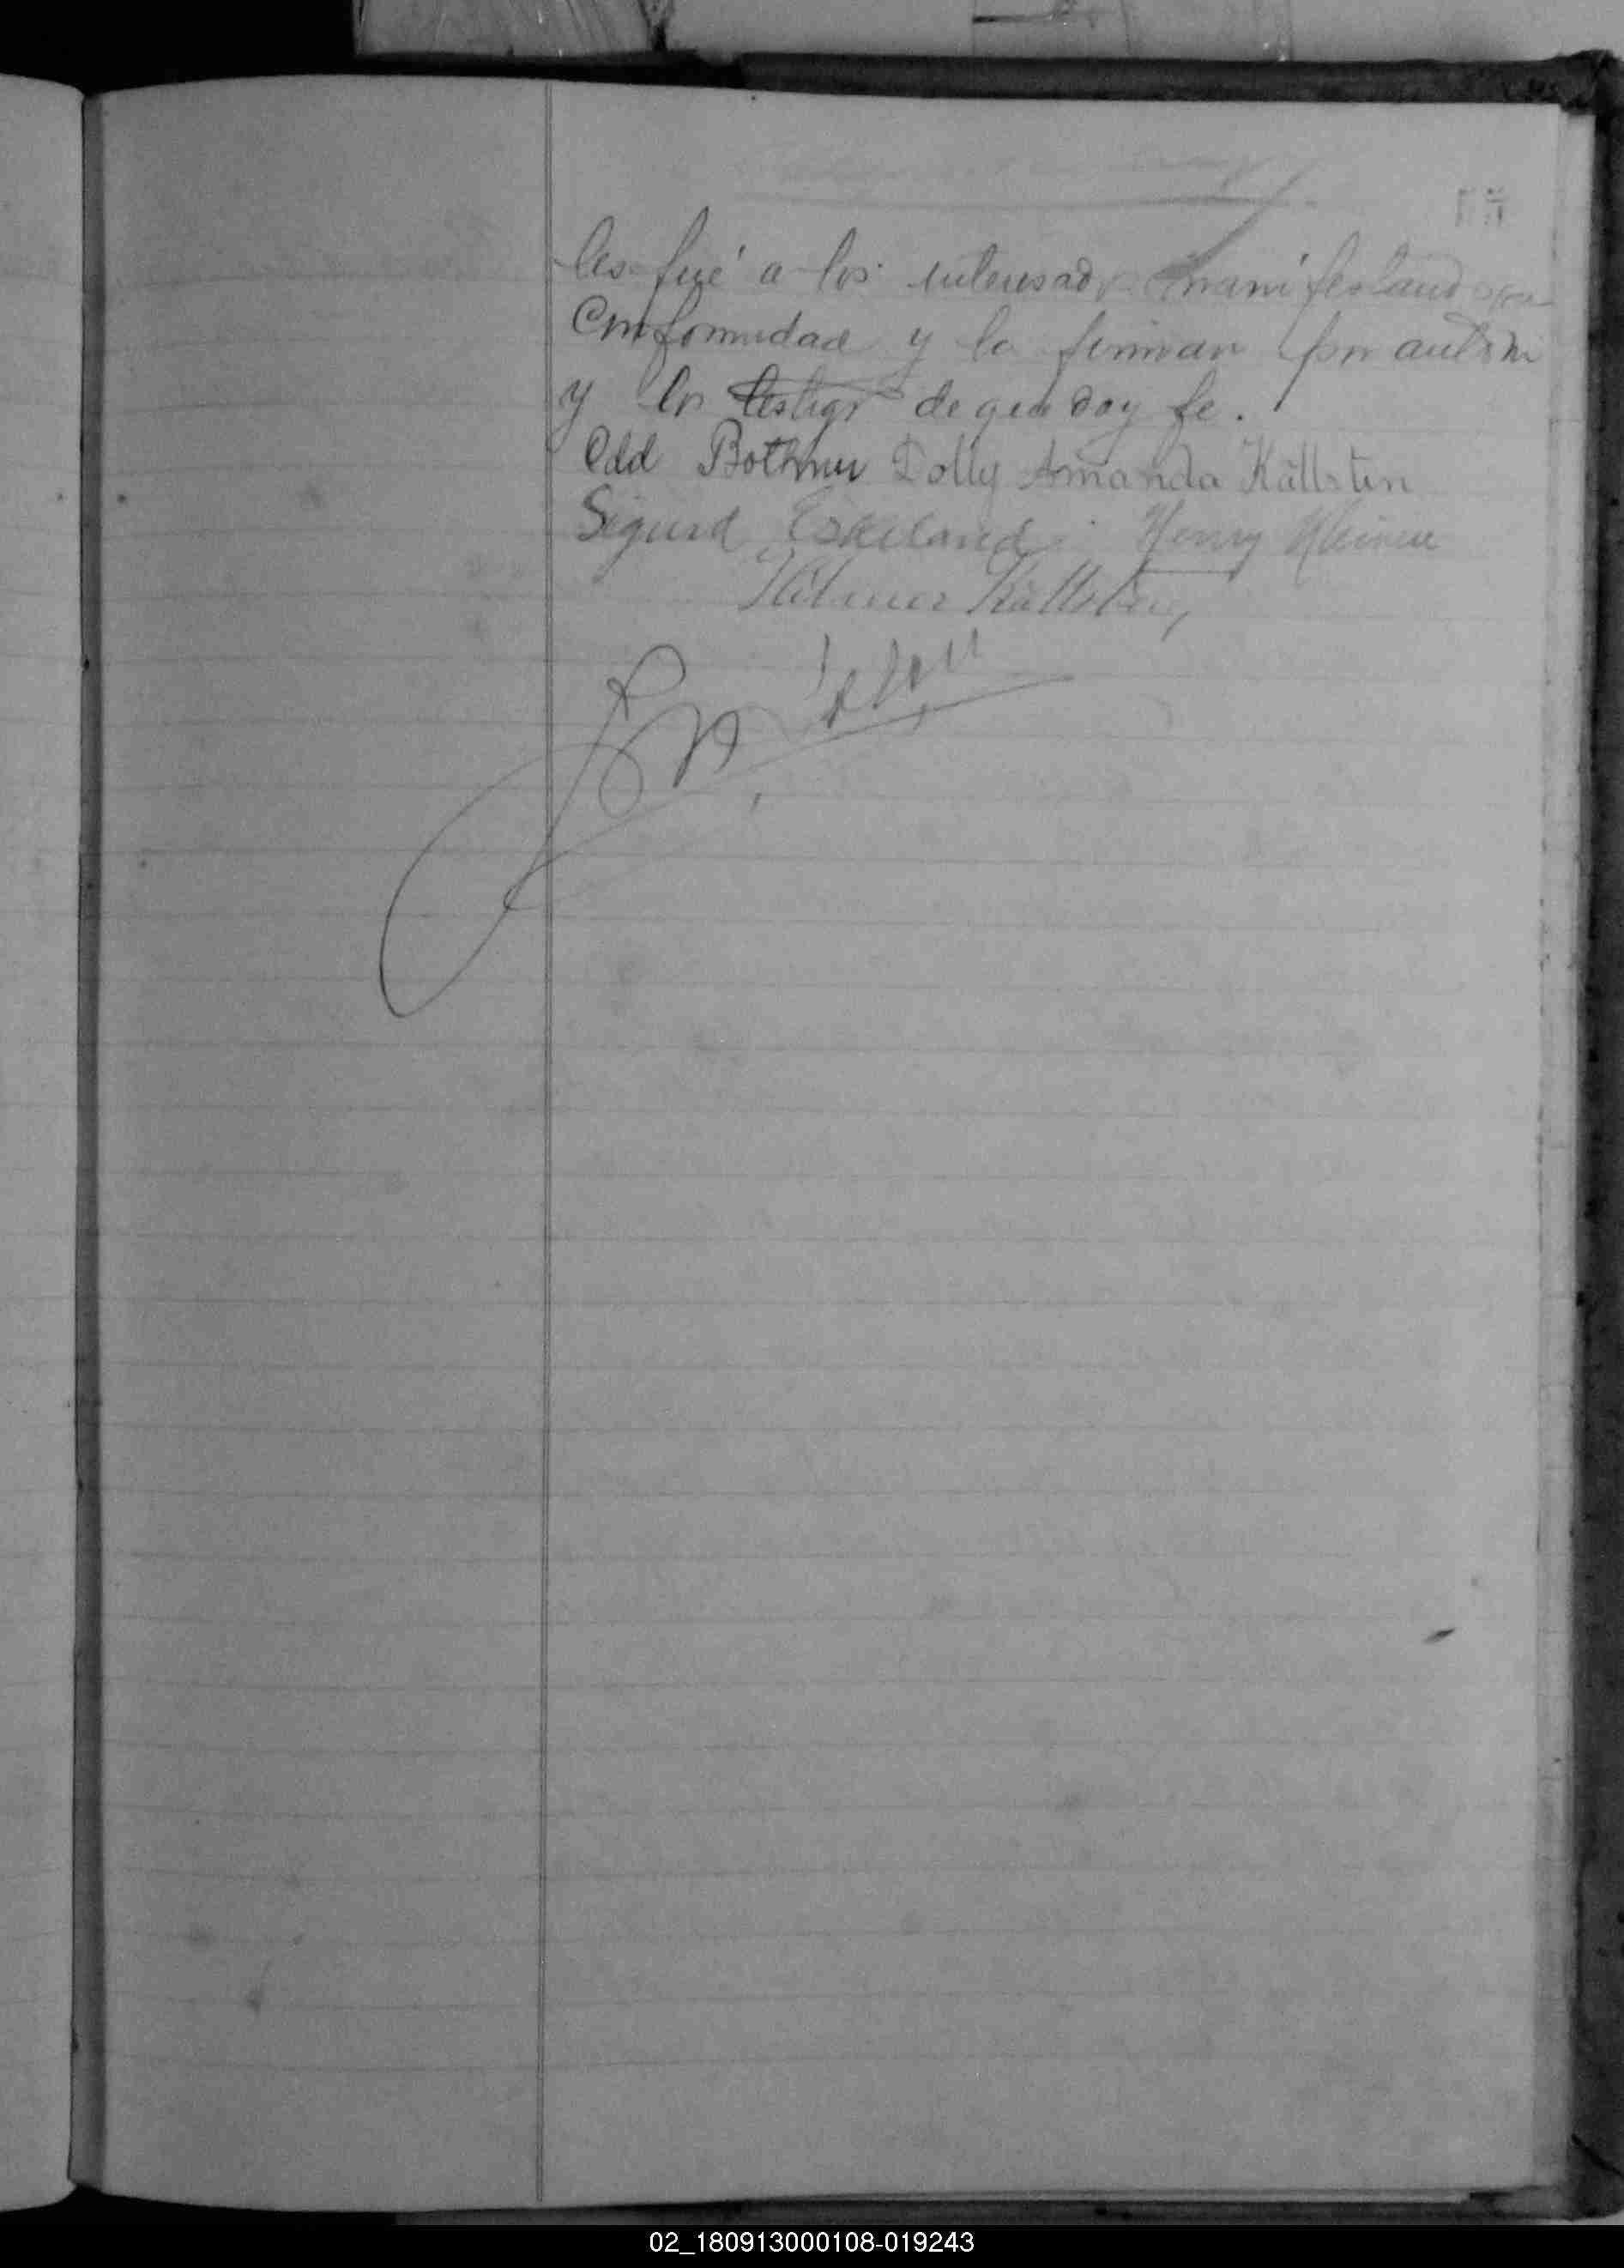 les fué a los interesados manifestando
conformidad y la firman por ante mi
y los testigos de que doy fe.
Odd Bothner Dolly Amanda Källsten
Sigurd Eskeland Henry
Hilmer Källsten,
02_180913000108-019243